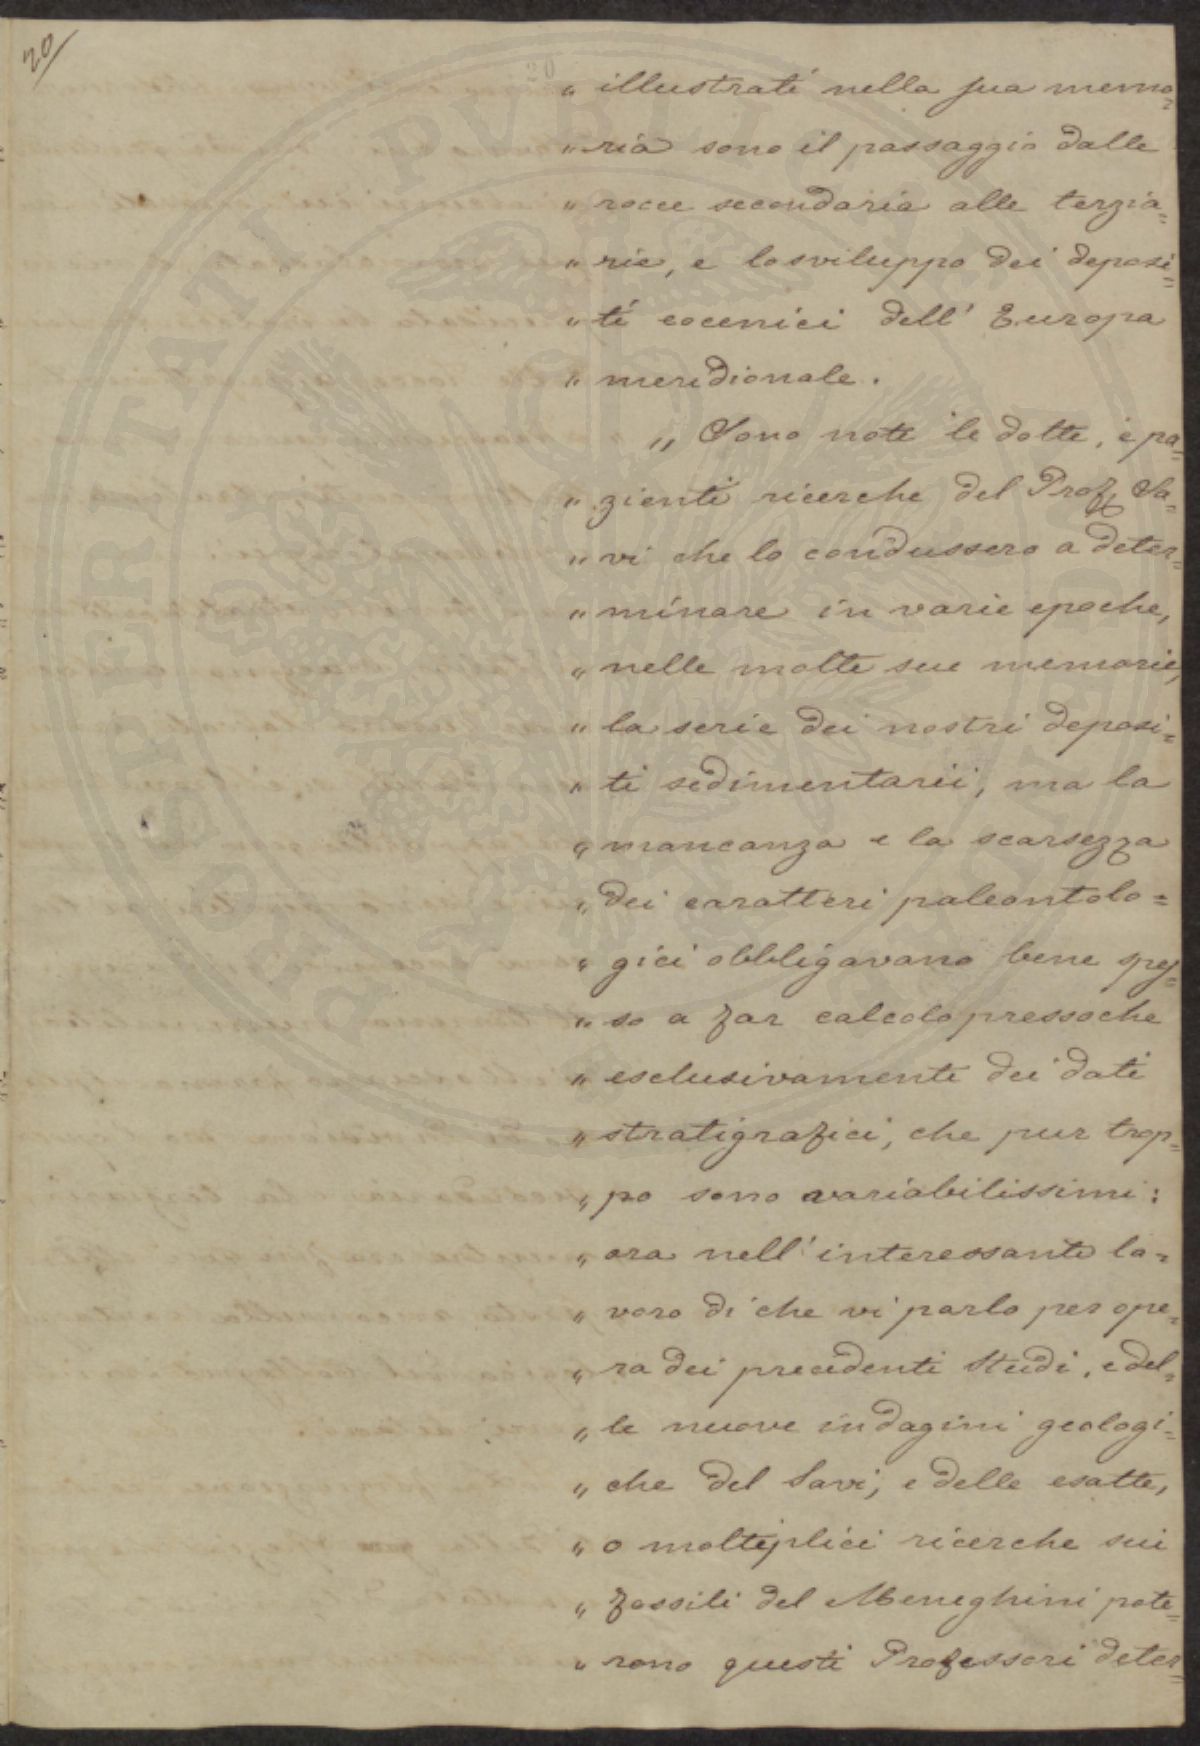 20
20
„ illustrati nella sua memo=
„ ria sono il passaggio dalle
„ rocce secondarie alle terzia=
„ rie, e lo sviluppo dei deposi=
„ ti eocenici dell' Europa
„ meridionale.
„ Sono note le dotte, e pa=
„ zienti ricerche del Prof. Sa=
„ vi che lo condussero a deter=
„ minare in varie epoche,
„ nelle molte sue memorie,
„ la serie dei nostri deposi=
„ ti sedimentarii, ma la
„ mancanza e la scarsezza
„ dei caratteri paleontolo=
„ gici obbligavano bene spes=
„ so a far calcolo pressoche
„ esclusivamente dei dati
„ stratigrafici, che pur trop=
„ po sono variabilissimi:
„ ora nell' interessante la=
„ voro di che vi parlo per ope=
„ ra dei precedenti Studi, e del=
„ le nuove indagini geologi=
„ che del Savi, e delle esatte,
„ o moltiplici ricerche sui
„ fossili del Meneghini pote=
„ rono questi Professori deter=
PROSPERITATI PVBLICAE AVGENDAE